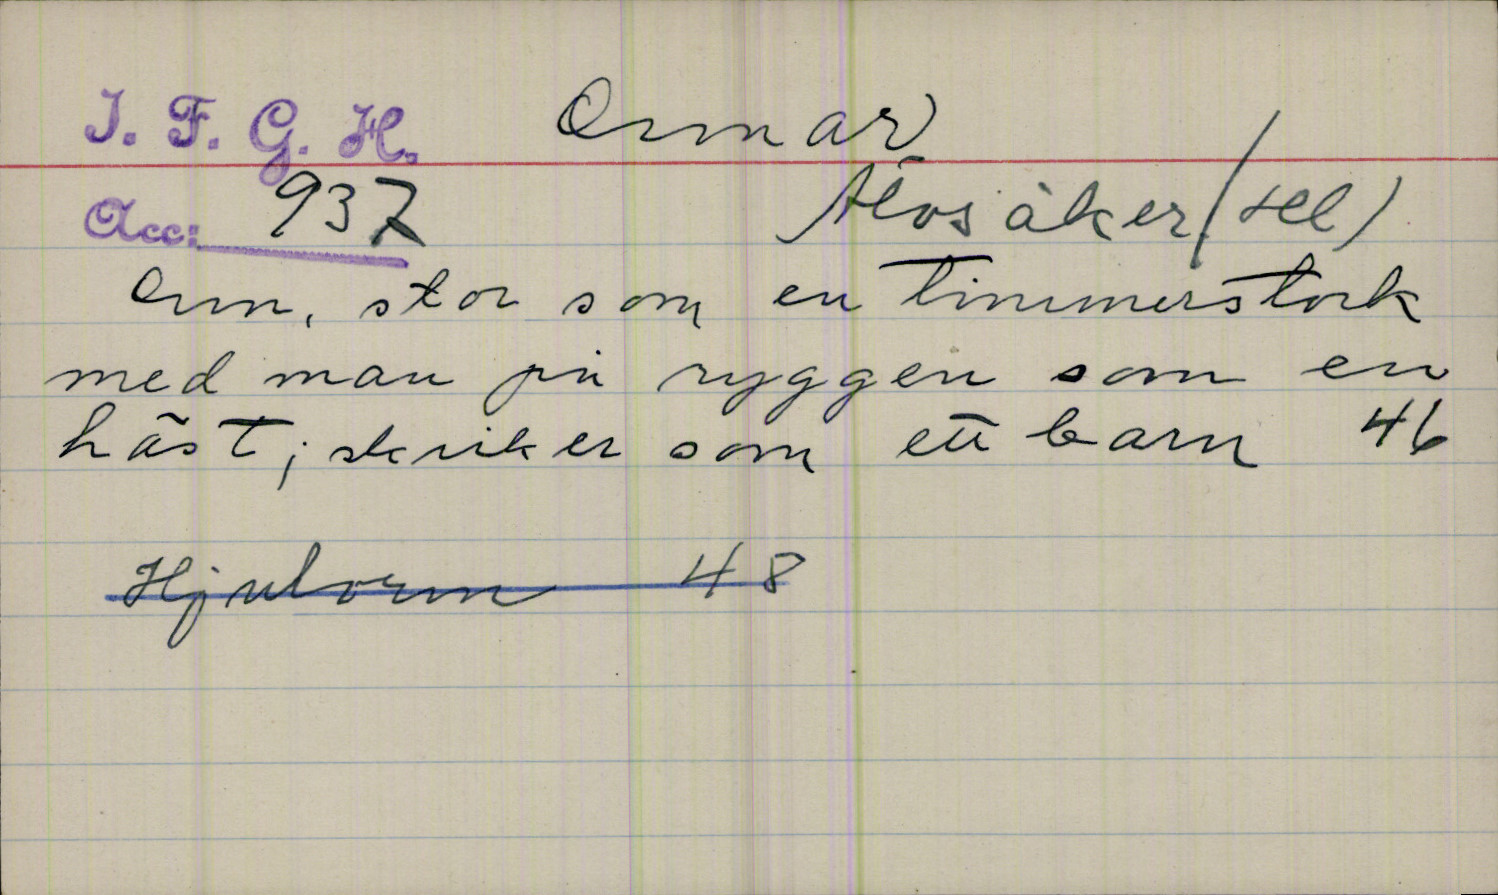 I. F. G. H. Ormar
Acc: 937 Älvsåker (Hll)
Orm, stor som en timmerstock
med man på ryggen som en
häst; skriker som ett barn 46
Hjulorm 48